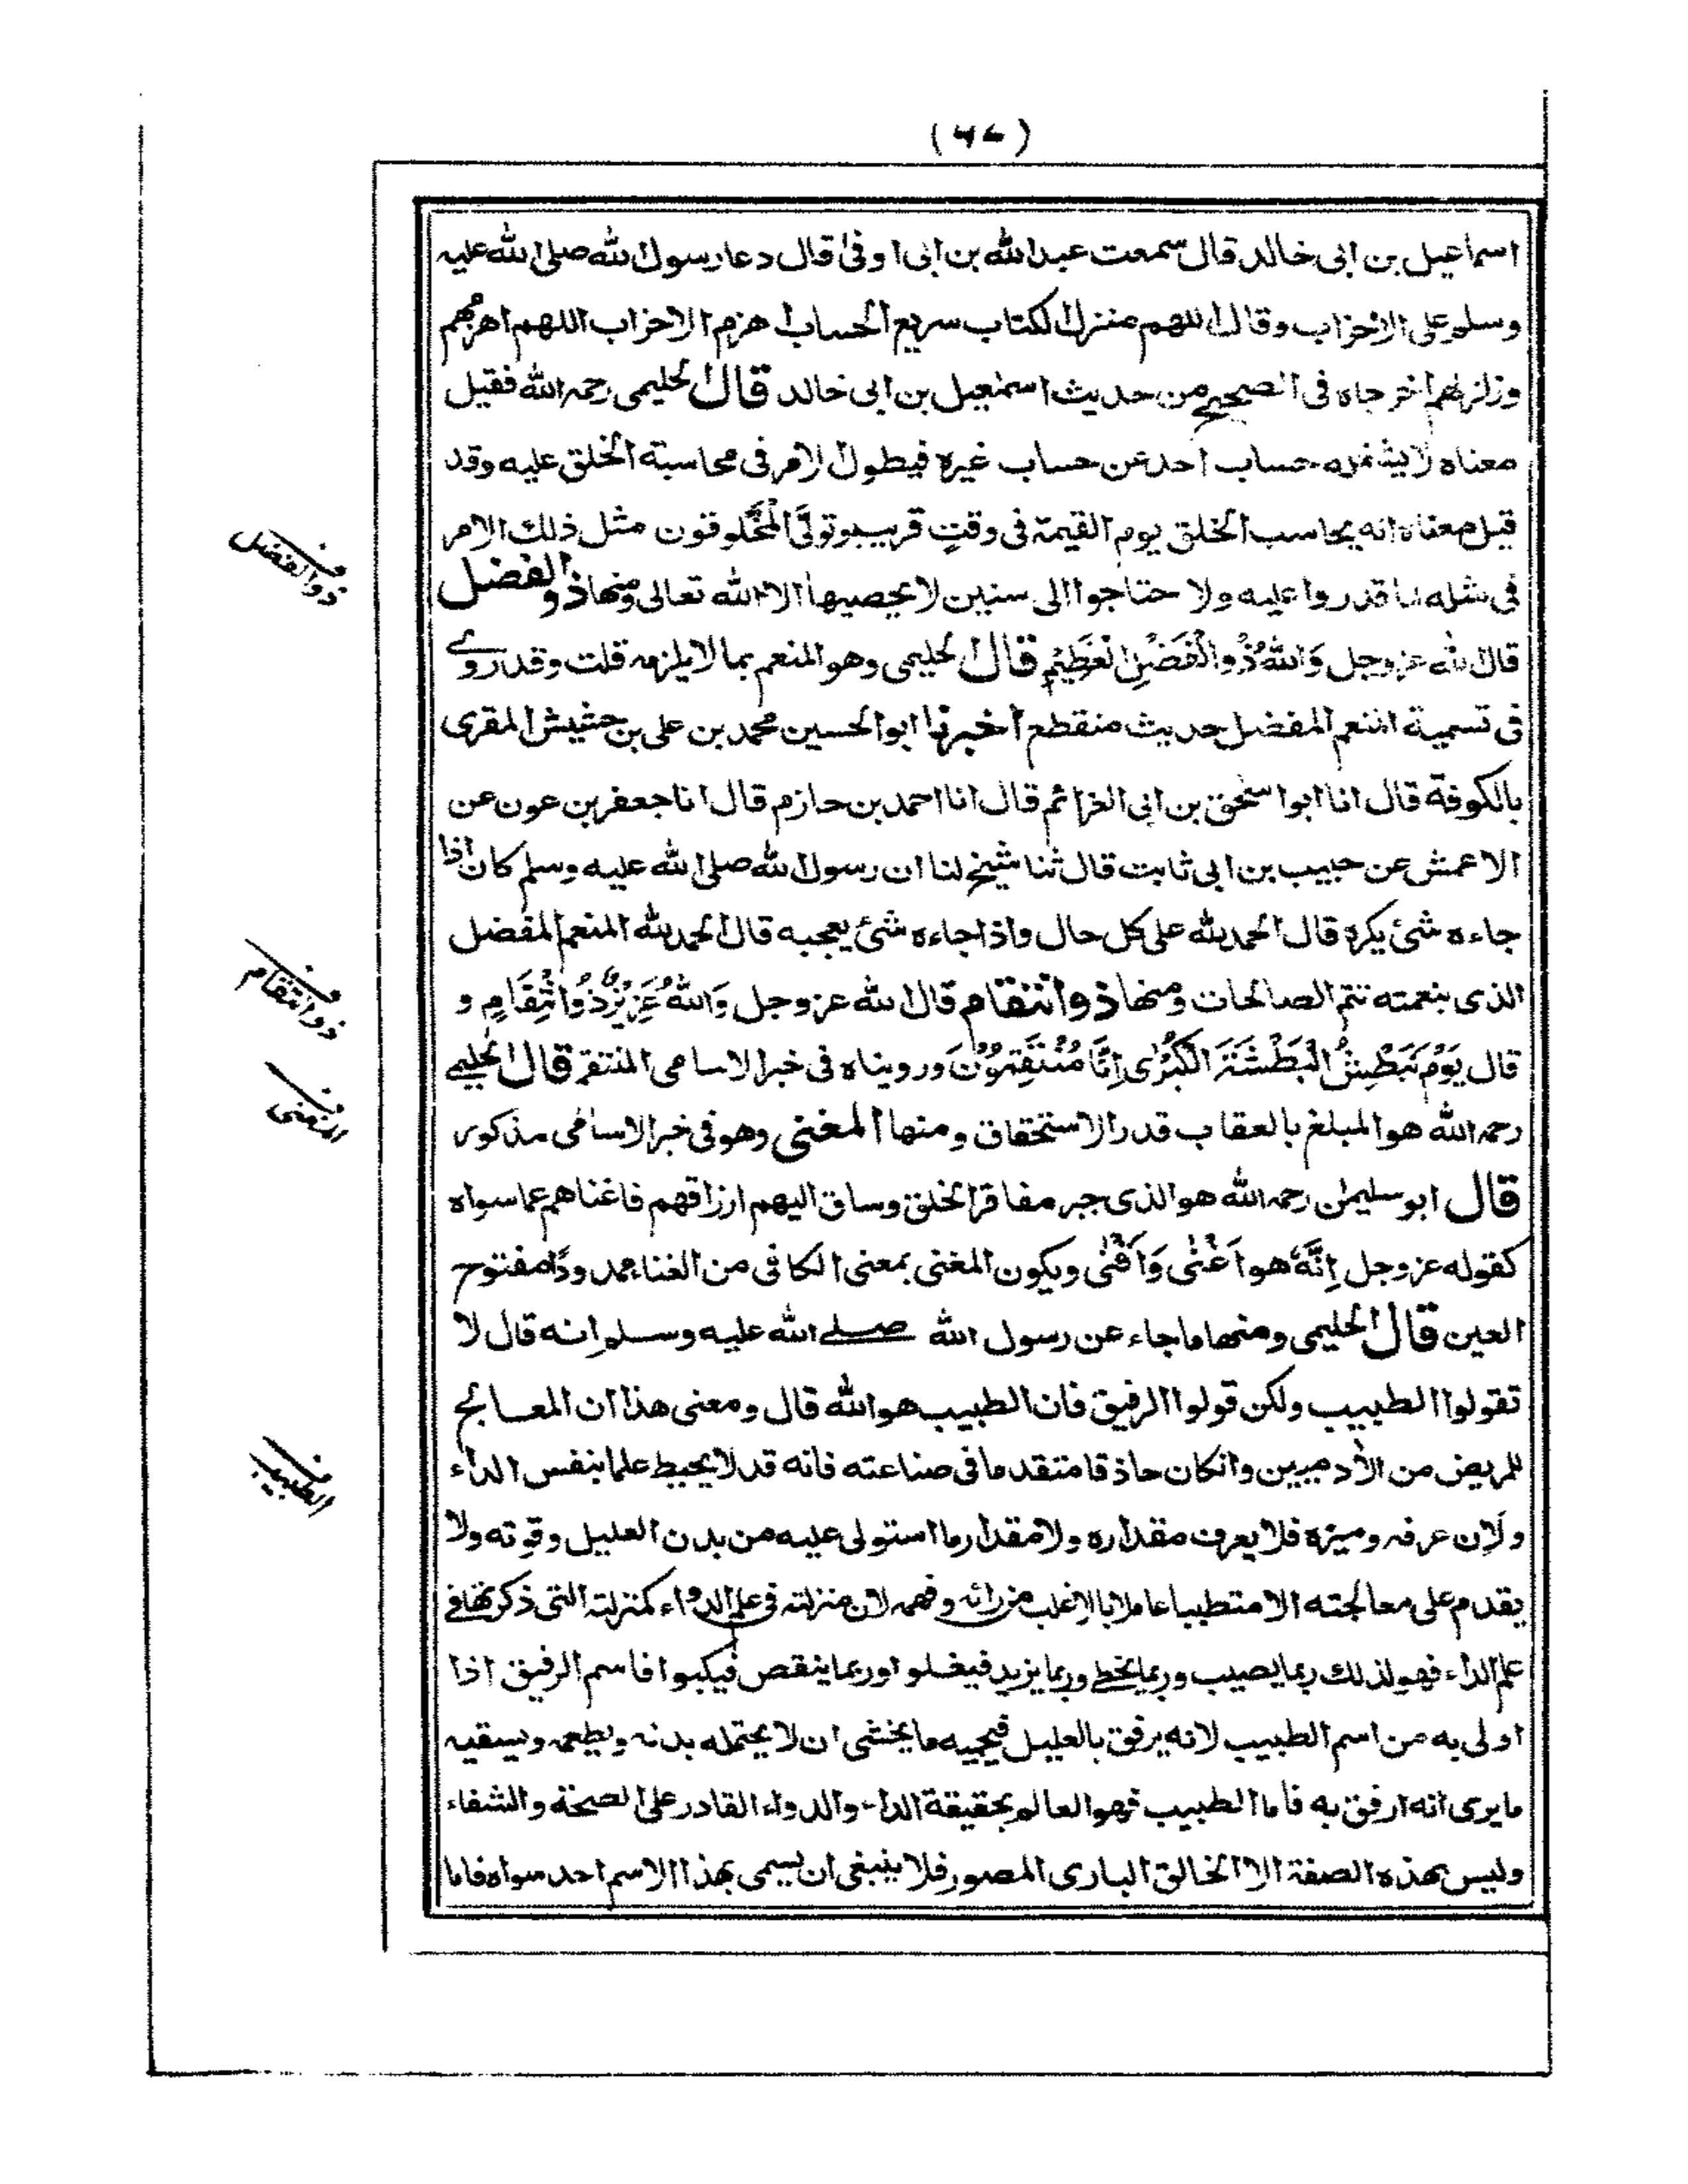 (٦٧)
اسماعیل بن ابی خالد قال سمعت عبد الله بن ابی اوفیٰ قال دعا رسول الله صلی الله علیه
وسلم علی الاحزاب وقال اللهم منزل الکتاب سریع الحساب اهزم الاحزاب اللهم اهزمهم
وزلزلهم اخرجاه فی الصحیح من حدیث اسمٰعیل بن ابی خالد قال الحلیمی رحمه الله فقیل
معناه لا یشغله حساب احد عن حساب غیره فیطول الامر فی محاسبة الخلق علیه وقد
قیل معناه انه یحاسب الخلق یوم القیمة فی وقتٍ قریب لو تولَّی المَخْلوقون مثل ذلك الامر
فی مثله ما قدروا علیه ولا حتاجوا الی سنین لا یحصیها الا الله تعالی ومنها ذو الفضل
ذو الفضل
قال الله عز وجل وَاللهُ ذُو الْفَضْلِ الْعَظِیْمِ قال الحلیمی وهو المنعم بما لا یلزمه قلت وقد روے
فی تسمیة المنعم المفضل حدیث منقطع اخبرنا ابو الحسین محمد بن علی بن حشیش المقری
بالکوفة قال انا ابو اسحٰق بن ابی العزائم قال انا احمد بن حازم قال انا جعفر بن عون عن
الاعمش عن حبیب بن ابی ثابت قال ثنا شیخ لنا ان رسول الله صلی الله علیه وسلم کان اذا
جاءه شئ یکره قال الحمد لله علی کل حال واذا جاءه شئ یعجبه قال الحمد لله المنعم المفضل
الذی بنعمته تتم الصالحات ومنها ذو انتقام قال الله عز وجل وَاللهُ عَزِیْزٌ ذُو انْتِقَامٍ و
ذو انتقام
قال یَوْمَ نَبْطِشُ الْبَطْشَةَ الْکُبْرٰی اِنَّا مُنْتَقِمُوْنَ ورویناه فی خبر الاسامی المنتقم قال الحلیمے
رحمه الله هو المبلغ بالعقاب قدر الاستحقاق ومنها المغنی وهو فی خبر الاسامی مذکور
المغنی
قال ابو سلیمٰن رحمه الله هو الذی جبر مفاقر الخلق وساق الیهم ارزاقهم فاغناهم عما سواه
کقوله عز وجل اِنَّهٗ هو اَغْنٰی وَاَقْنٰی ویکون المغنی بمعنی الکافی من الغناء ممدودًا مفتوح
العین قال الحلیمی ومنها ما جاء عن رسول الله صلے الله علیه وسلم انه قال لا
تقولوا الطبیب ولکن قولوا الرفیق فان الطبیب هو الله قال ومعنی هذا ان المعالج
للمریض من الأدمیین وانکان حاذقا متقدما فی صناعته فانه قد لا یحیط علما بنفس الداء
الطبیب
ولان عرفه ومیزه فلا یعرف مقداره ولا مقدار ما استولی علیه من بدن العلیل وقوته ولا
یقدم علی معالجته الا متطببا عاملا بالاغلب من رائه وفهمه لان منزلته فی علم الدواء کمنزلته التی ذکرتها فے
علم الداء فهو لذلك ربما یصیب وربما یخطے وربما یزید فیغلو اوربما ینقص فیکبوا فاسم الرفیق اذا
اولی به من اسم الطبیب لانه یرفق بالعلیل فیحمیه ما یخشی ان لا یحتمله بدنه ویطعمه ویسقیه
ما یری انه ارفق به فاما الطبیب فهو العالم بحقیقة الداء والدواء القادر علی الصحة والشفاء
ولیس بهذه الصفة الا الخالق الباری المصور فلا ینبغی ان یسمی بهذا الاسم احد سواه فاما